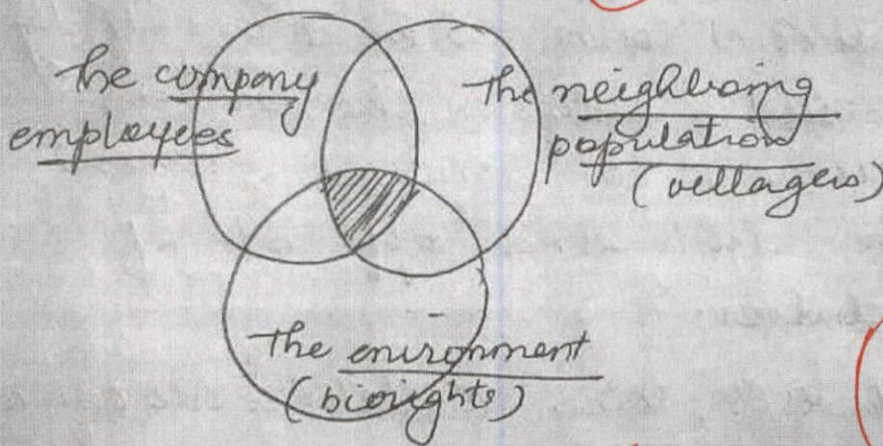 the company
employees
The neighbouring
population
(villagers)
The environment
(biorights)